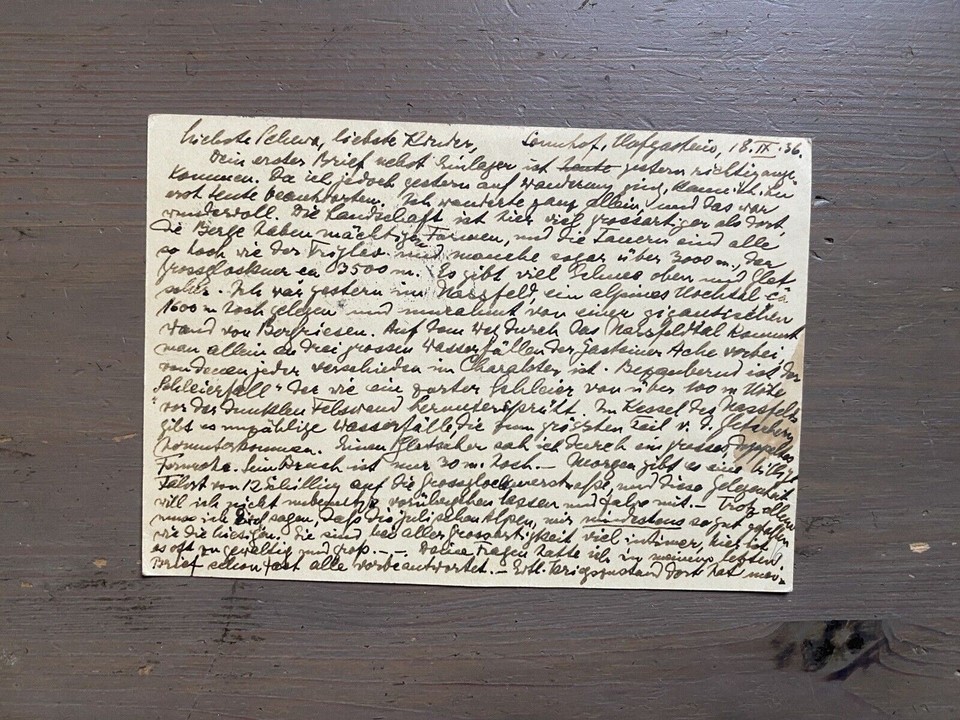 Liebste Schwa, liebste Kinder, Sonnhof, Hofgastein, 18.IX.36.
Dein erster Brief nebst Einlagen ist heute gestern richtig ange-
kommen. Da ich jedoch gestern auf Wanderung ging, kann ich ihn
erst heute beantworten. Ich wanderte ganz allein, und das war
wundervoll. Die Landschaft ist hier viel grossartiger als dort,
die Berge haben mächtige Formen, und die Tauern sind alle
so hoch wie der Triglav und manche sogar über 3000 m, der
Grossglockner ca 3500 m. Es gibt viel Schnee oben, und Glet-
scher. Ich war gestern im Nassfeld, ein alpines Hochtal ca
1600 m hoch gelegen und umrahmt von einer gigantischen
Wand von Bergriesen. Auf dem Weg durch das Nassfeldtal kommt
man allein an drei grossen Wasserfällen der Gasteiner Ache vorbei,
von denen jeder verschieden im Charakter ist. Bezaubernd ist der
"Schleierfall" der wie ein zarter Schleier von über 100 m Höhe
vor der dunklen Felswand heruntersprüht. Im Kessel des Nassfelds
gibt es unzählige Wasserfälle, die zum grössten Teil v. d. Gletschern
herunterkommen. Einen Gletscher sah ich durch ein grosses, doppeltes
Fernrohr. Sein Bruch ist nur 30 m hoch. – Morgen gibt es eine billige
Fahrt von 12 Schilling auf die Grossglocknerstrasse, und diese Gelegenheit
will ich nicht unbenutzt vorübergehen lassen und fahre mit. – Trotz allem
muss ich Euch sagen, dass die julischen Alpen, mir mindestens so gut gefallen
wie die hiesigen. Sie sind bei aller Grossartigkeit viel intimer, hier ist
es oft zu gewaltig und groß. – – Deine Fragen hatte ich in meinem letzten
Brief schon fast alle vorbeantwortet. – dort hat man